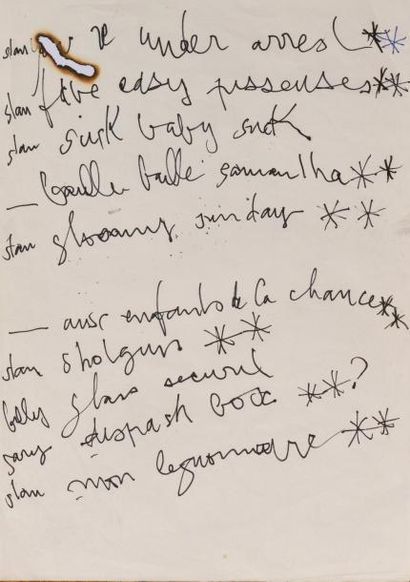 stan re under arrest **
stan five easy pisseuses **
stan suck baby suck
— baille baille samantha **
stan gloomy sunday **
— aux enfants de la chance **
stan shotgun **
billy glass securit
gary dispash box **?
stan mon legionnaire **